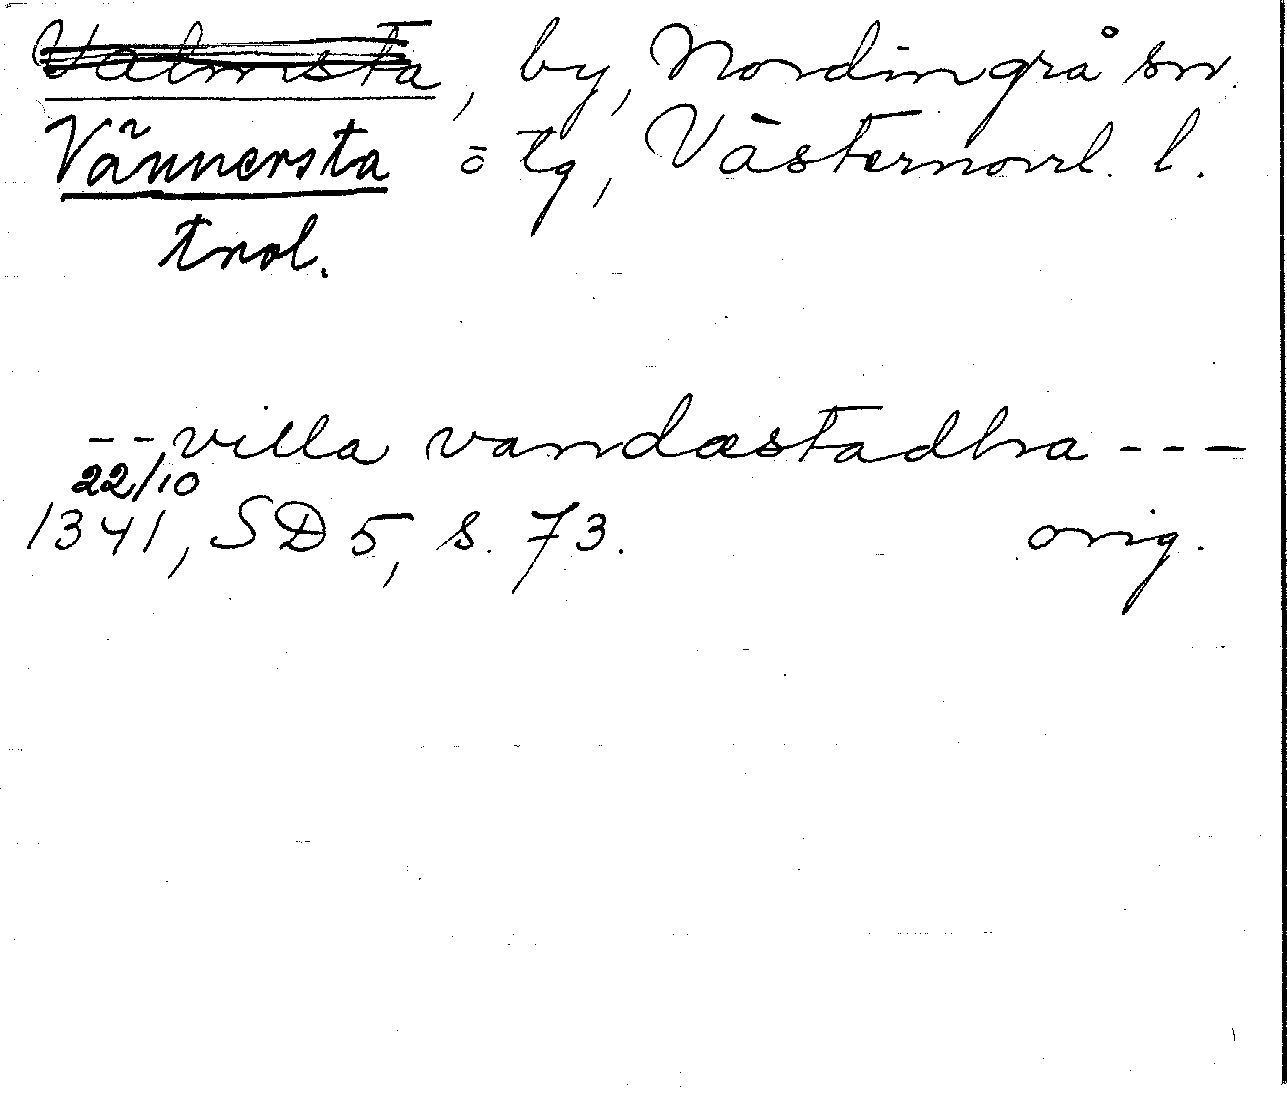 Valmsta, by, Nordingrå sn.
Vännersta ö tg, Västernorrl. l.
trol.
-- villa vandæstadha ---
22/10
1341, SD 5, s. 73. orig.